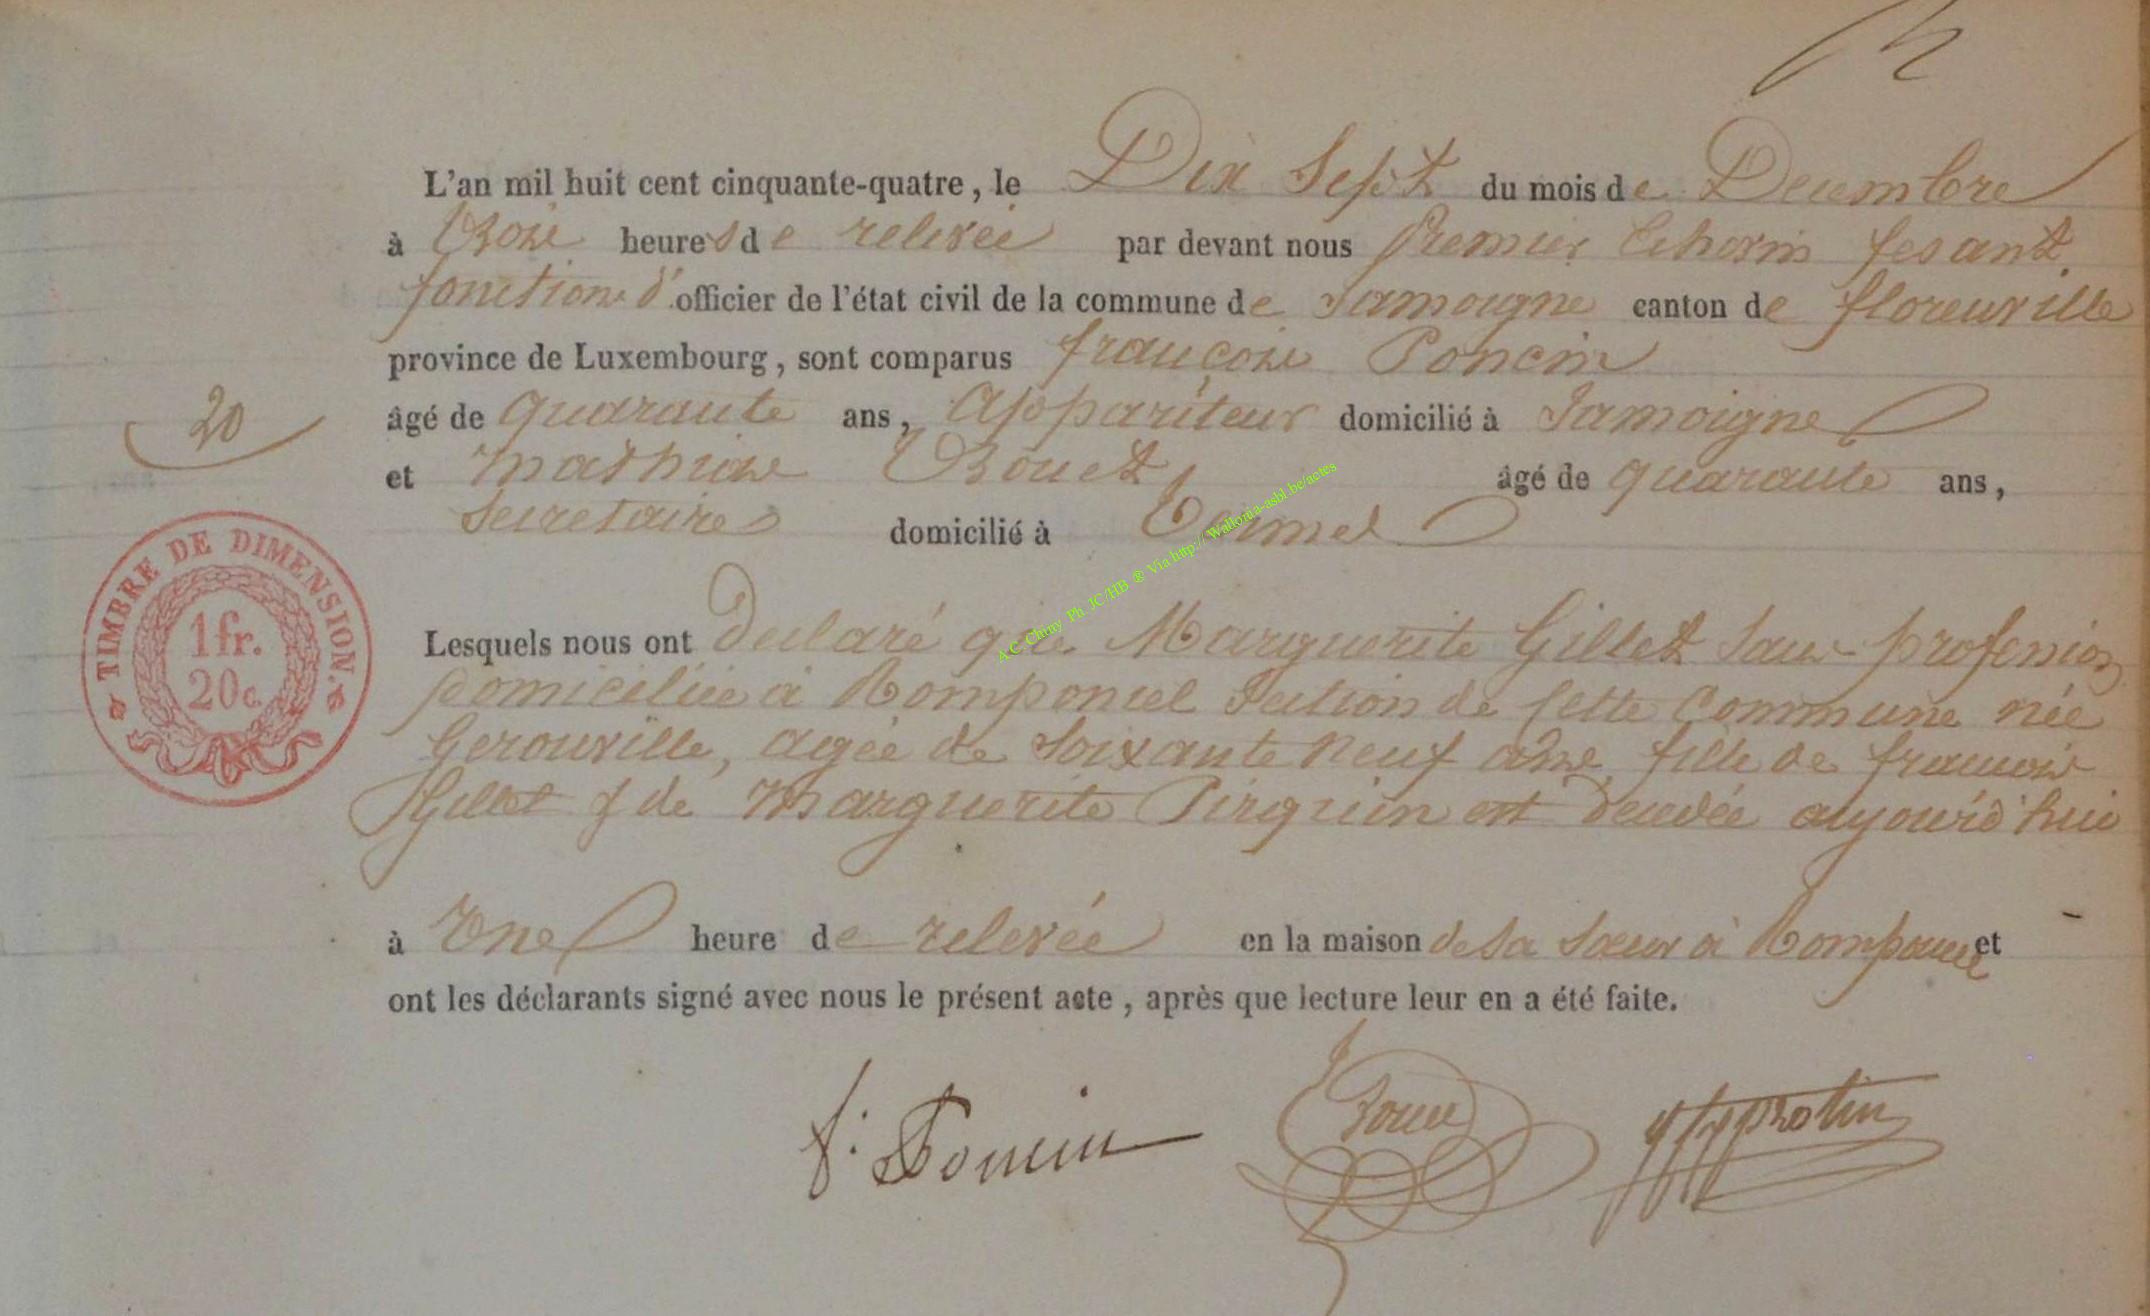 L'an mil huit cent cinquante-quatre, le Dix Sept du mois de Decembre
à Trois heures de relevée par devant nous Premier Echevin fesant
fonction d'officier de l'état civil de la commune de Jamoigne canton de florenville
province de Luxembourg, sont comparus françois Poncin
âgé de quarante ans, Appariteur domicilié à Jamoigne
20
et Mathias Rouet, âgé de quarante ans,
Secretaire domicilié à Termes
TIMBRE DE DIMENSION.
1 fr.
20c.
Lesquels nous ont Declaré que Marguerite Gillet Sans profession
Domiciliée à Romponcel Section de Cette Commune née
Gerouville, agée de Soixante Neuf ans, fille de francois
Gillet & de Marguerite Pirquin est décédée aujourd'hui
à Une heure de relevée en la maison de sa Sœur à Romponcel et
ont les déclarants signé avec nous le présent acte, après que lecture leur en a été faite.
f. Poncin
A.C. Chiny Ph. JC/HB ® Via http://Wallonia-asbl.be/actes